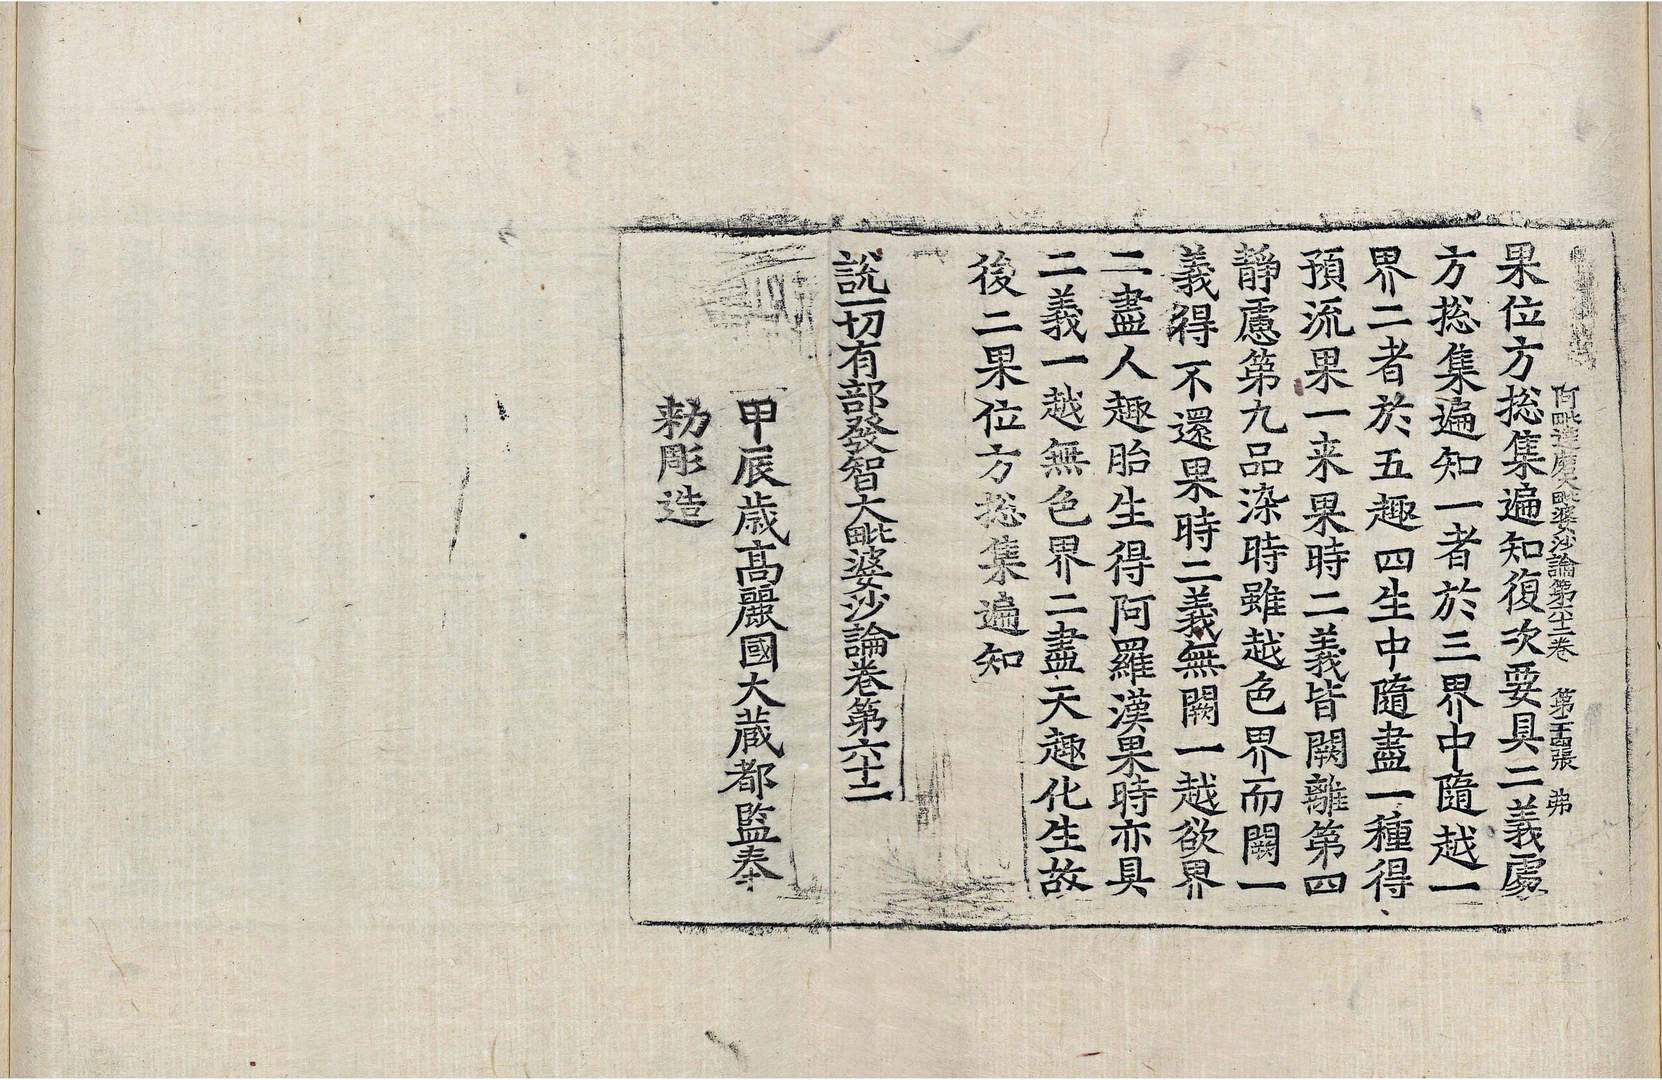 阿毗達磨大毗婆沙論第六十二卷 第二十四張 弗
果位方捴集遍知復次要具二義處
方捴集遍知一者於三界中隨越一
界二者於五趣四生中隨盡一種得
預流果一来果時二義皆闕離第四
静慮第九品染時雖越色界而闕一
義得不還果時二義無闕一越欲界
二盡人趣胎生得阿羅漢果時亦具
二義一越無色界二盡天趣化生故
後二果位方捴集遍知
說一切有部發智大毗婆沙論卷第六十二
甲辰歳高麗國大蔵都監奉
勑彫造